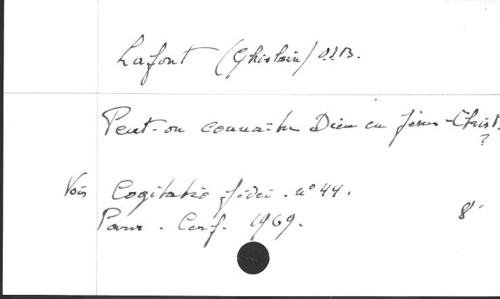 Lafont (Ghislain) O.S.B.
Peut-on connaître Dieu en Jésus-Christ
?
Voir Cogitatio fidei. n° 44.
Paris. Cerf. 1969. 8°